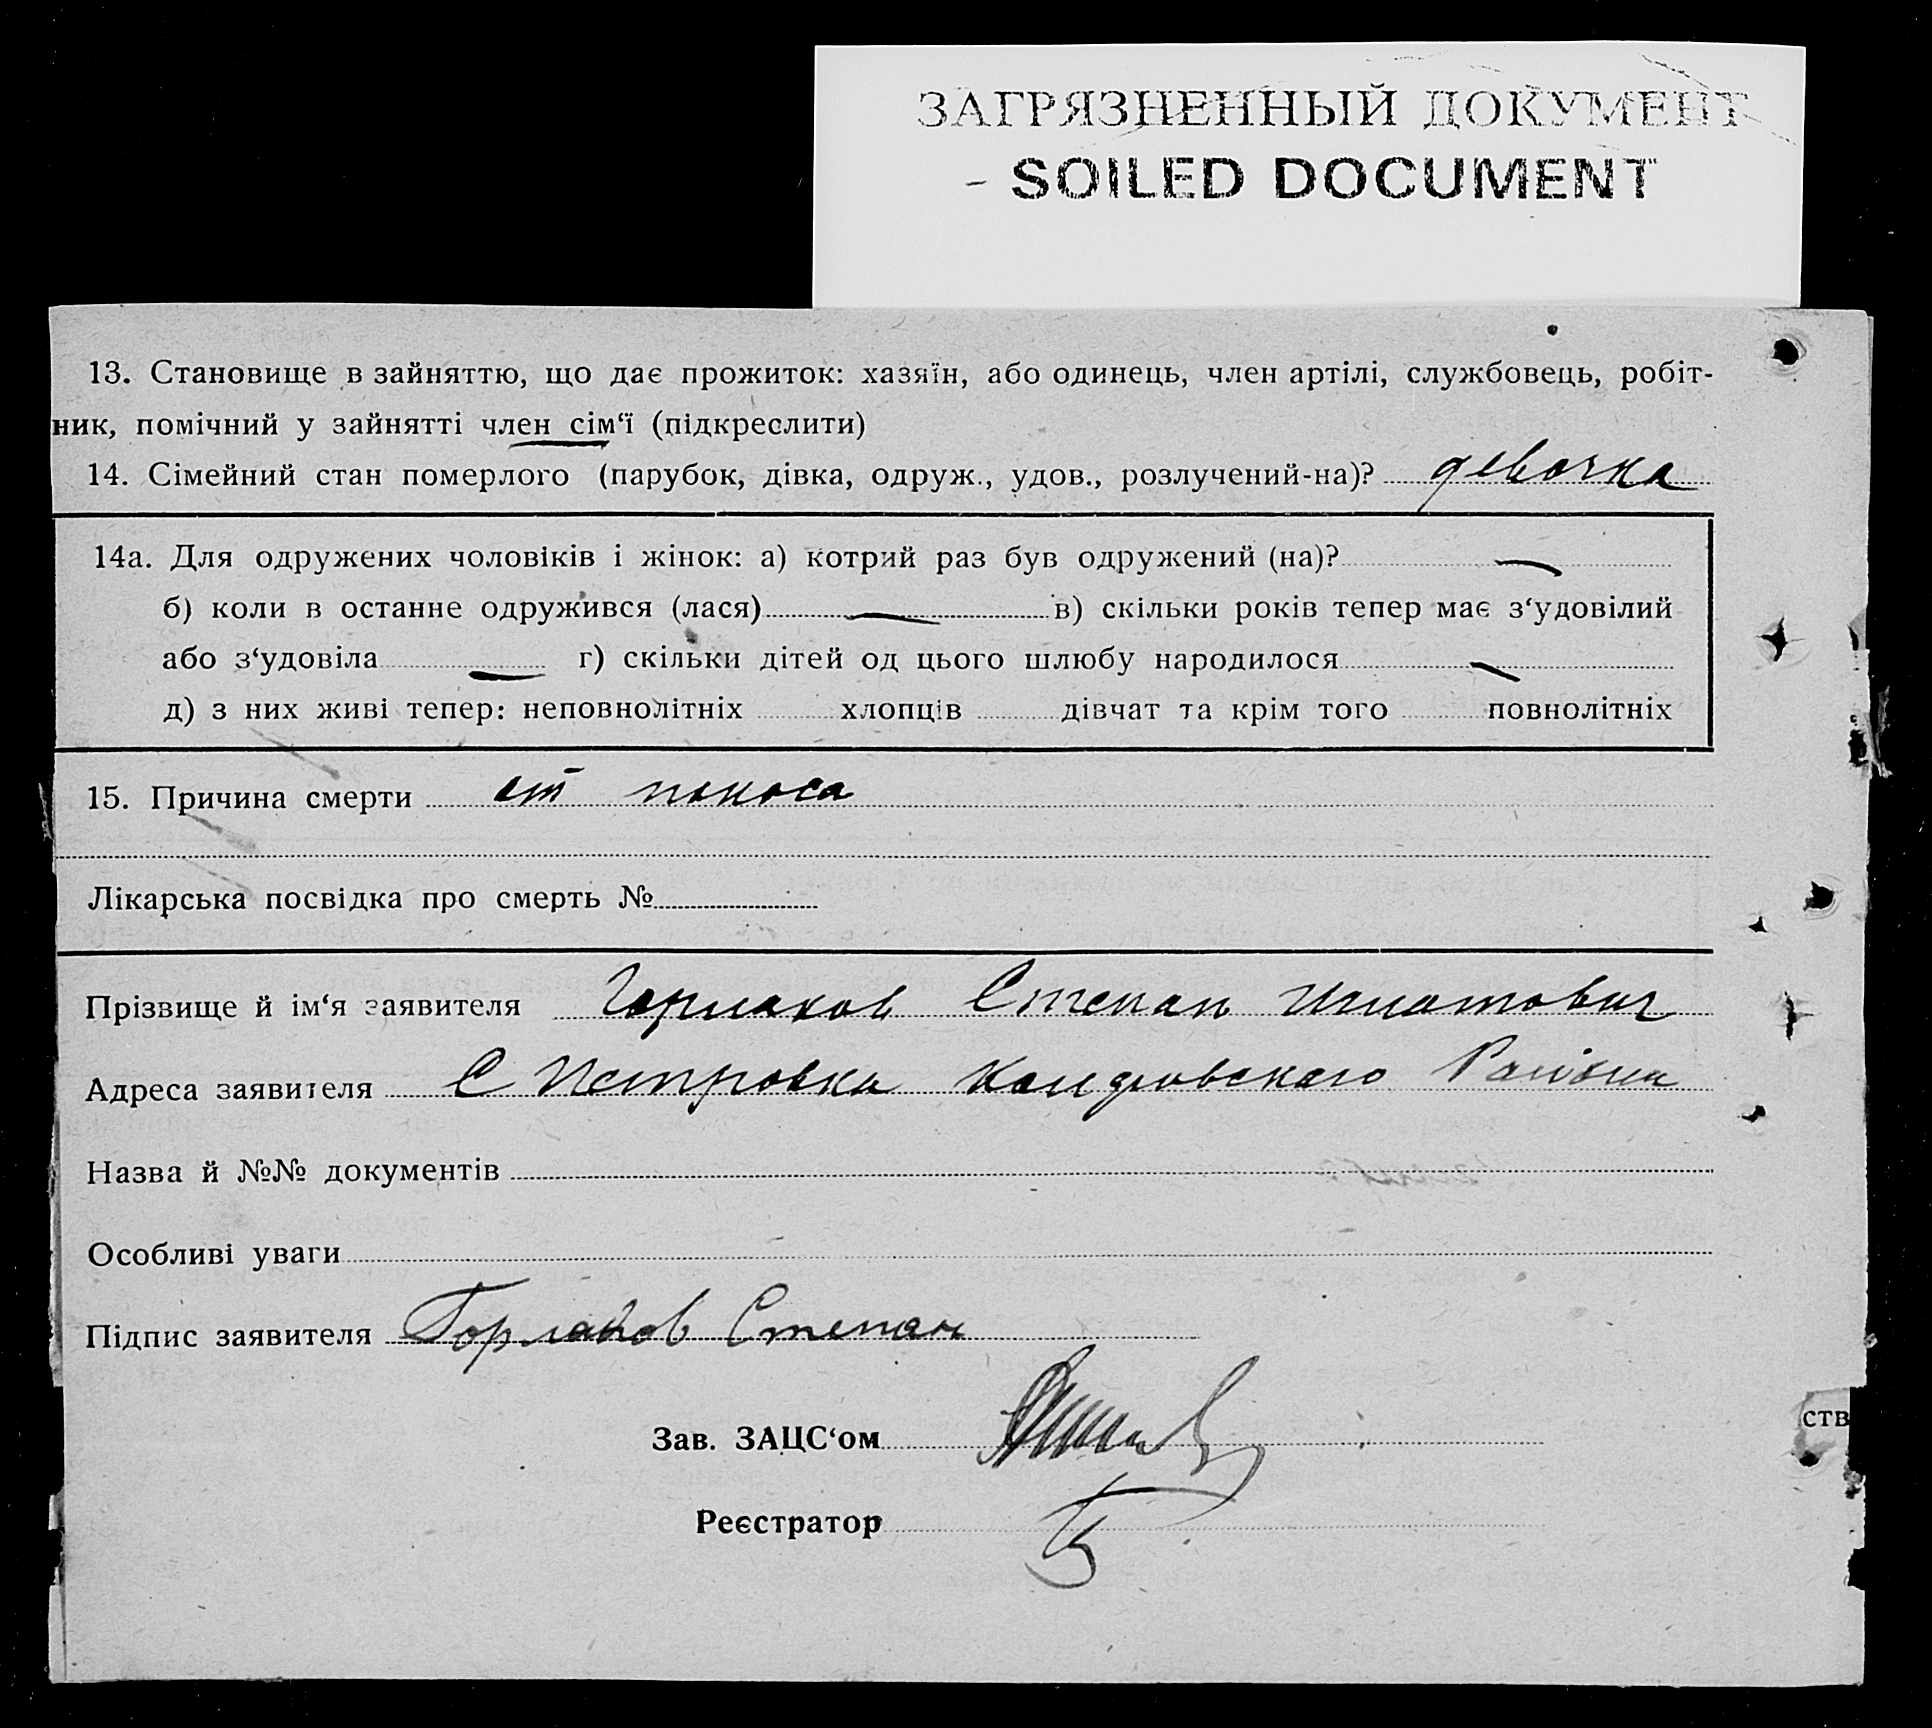 ЗАГРЯЗНЕННЫЙ ДОКУМЕНТ
- SOILED DOCUMENT
13. Становище в зайняттю, що дає прожиток: хазяїн, або одинець, член артілі, службовець, робіт-
ник, помічний у зайнятті член сім‘ї (підкреслити)
14. Сімейний стан померлого (парубок, дівка, одруж., удов., розлучений-на)? девочка
14а. Для одружених чоловіків і жінок: а) котрий раз був одружений (на)? —
б) коли в останне одружився (лася) — в) скільки років тепер має з‘удовілий
або з‘удовіла — г) скільки дітей од цього шлюбу народилося —
д) з них живі тепер: неповнолітніх хлопців дівчат та крім того повнолітніх
15. Причина смерти от поноса
Лікарська посвідка про смерть №
Прізвище й ім‘я заявителя Горлаков Степан Игнатович
Адреса заявителя С Петровка Района
Назва й №№ документів
Особливі уваги
Підпис заявителя Горлаков Степан
Зав. ЗАЦС‘ом
ств
Реєстратор